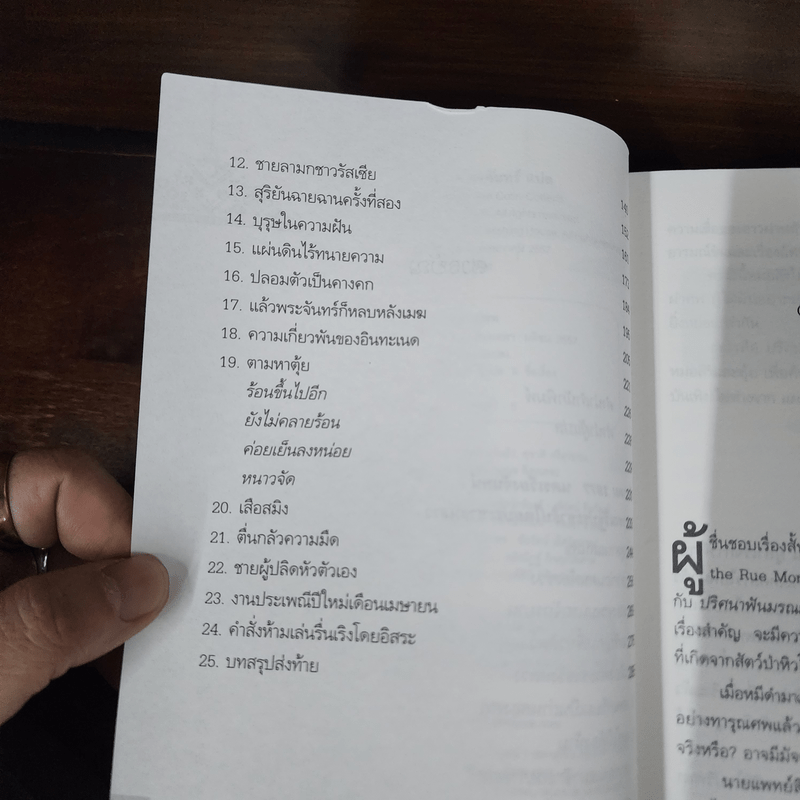 12. ชายลามกชาวรัสเซีย
13. สุริยันฉายฉานครั้งที่สอง
14. บุรุษในความฝัน
15. แผ่นดินไร้ทนายความ
16. ปลอมตัวเป็นคางคก
17. แล้วพระจันทร์ก็หลบหลังเมฆ
18. ความเกี่ยวพันของอินทะเนด
19. ตามหาตุ้ย
ร้อนขึ้นไปอีก
ยังไม่คลายร้อน
ค่อยเย็นลงหน่อย
หนาวจัด
20. เสือสมิง
21. ตื่นกลัวความมืด
22. ชายผู้ปลิดหัวตัวเอง
23. งานประเพณีปีใหม่เดือนเมษายน
24. คำสั่งห้ามเล่นรื่นเริงโดยอิสระ
25. บทสรุปส่งท้าย
ผู้ชื่นชอบเรื่องสั้น
the Rue Mor
กับ ปริศนาฟันมรณะ
เรื่องสำคัญ จะมีควา
ที่เกิดจากสัตว์ป่าหิวโ
เมื่อหมีดำมาเ
อย่างทารุณศพแล้ว
จริงหรือ? อาจมีมัจ
นายแพทย์สิ